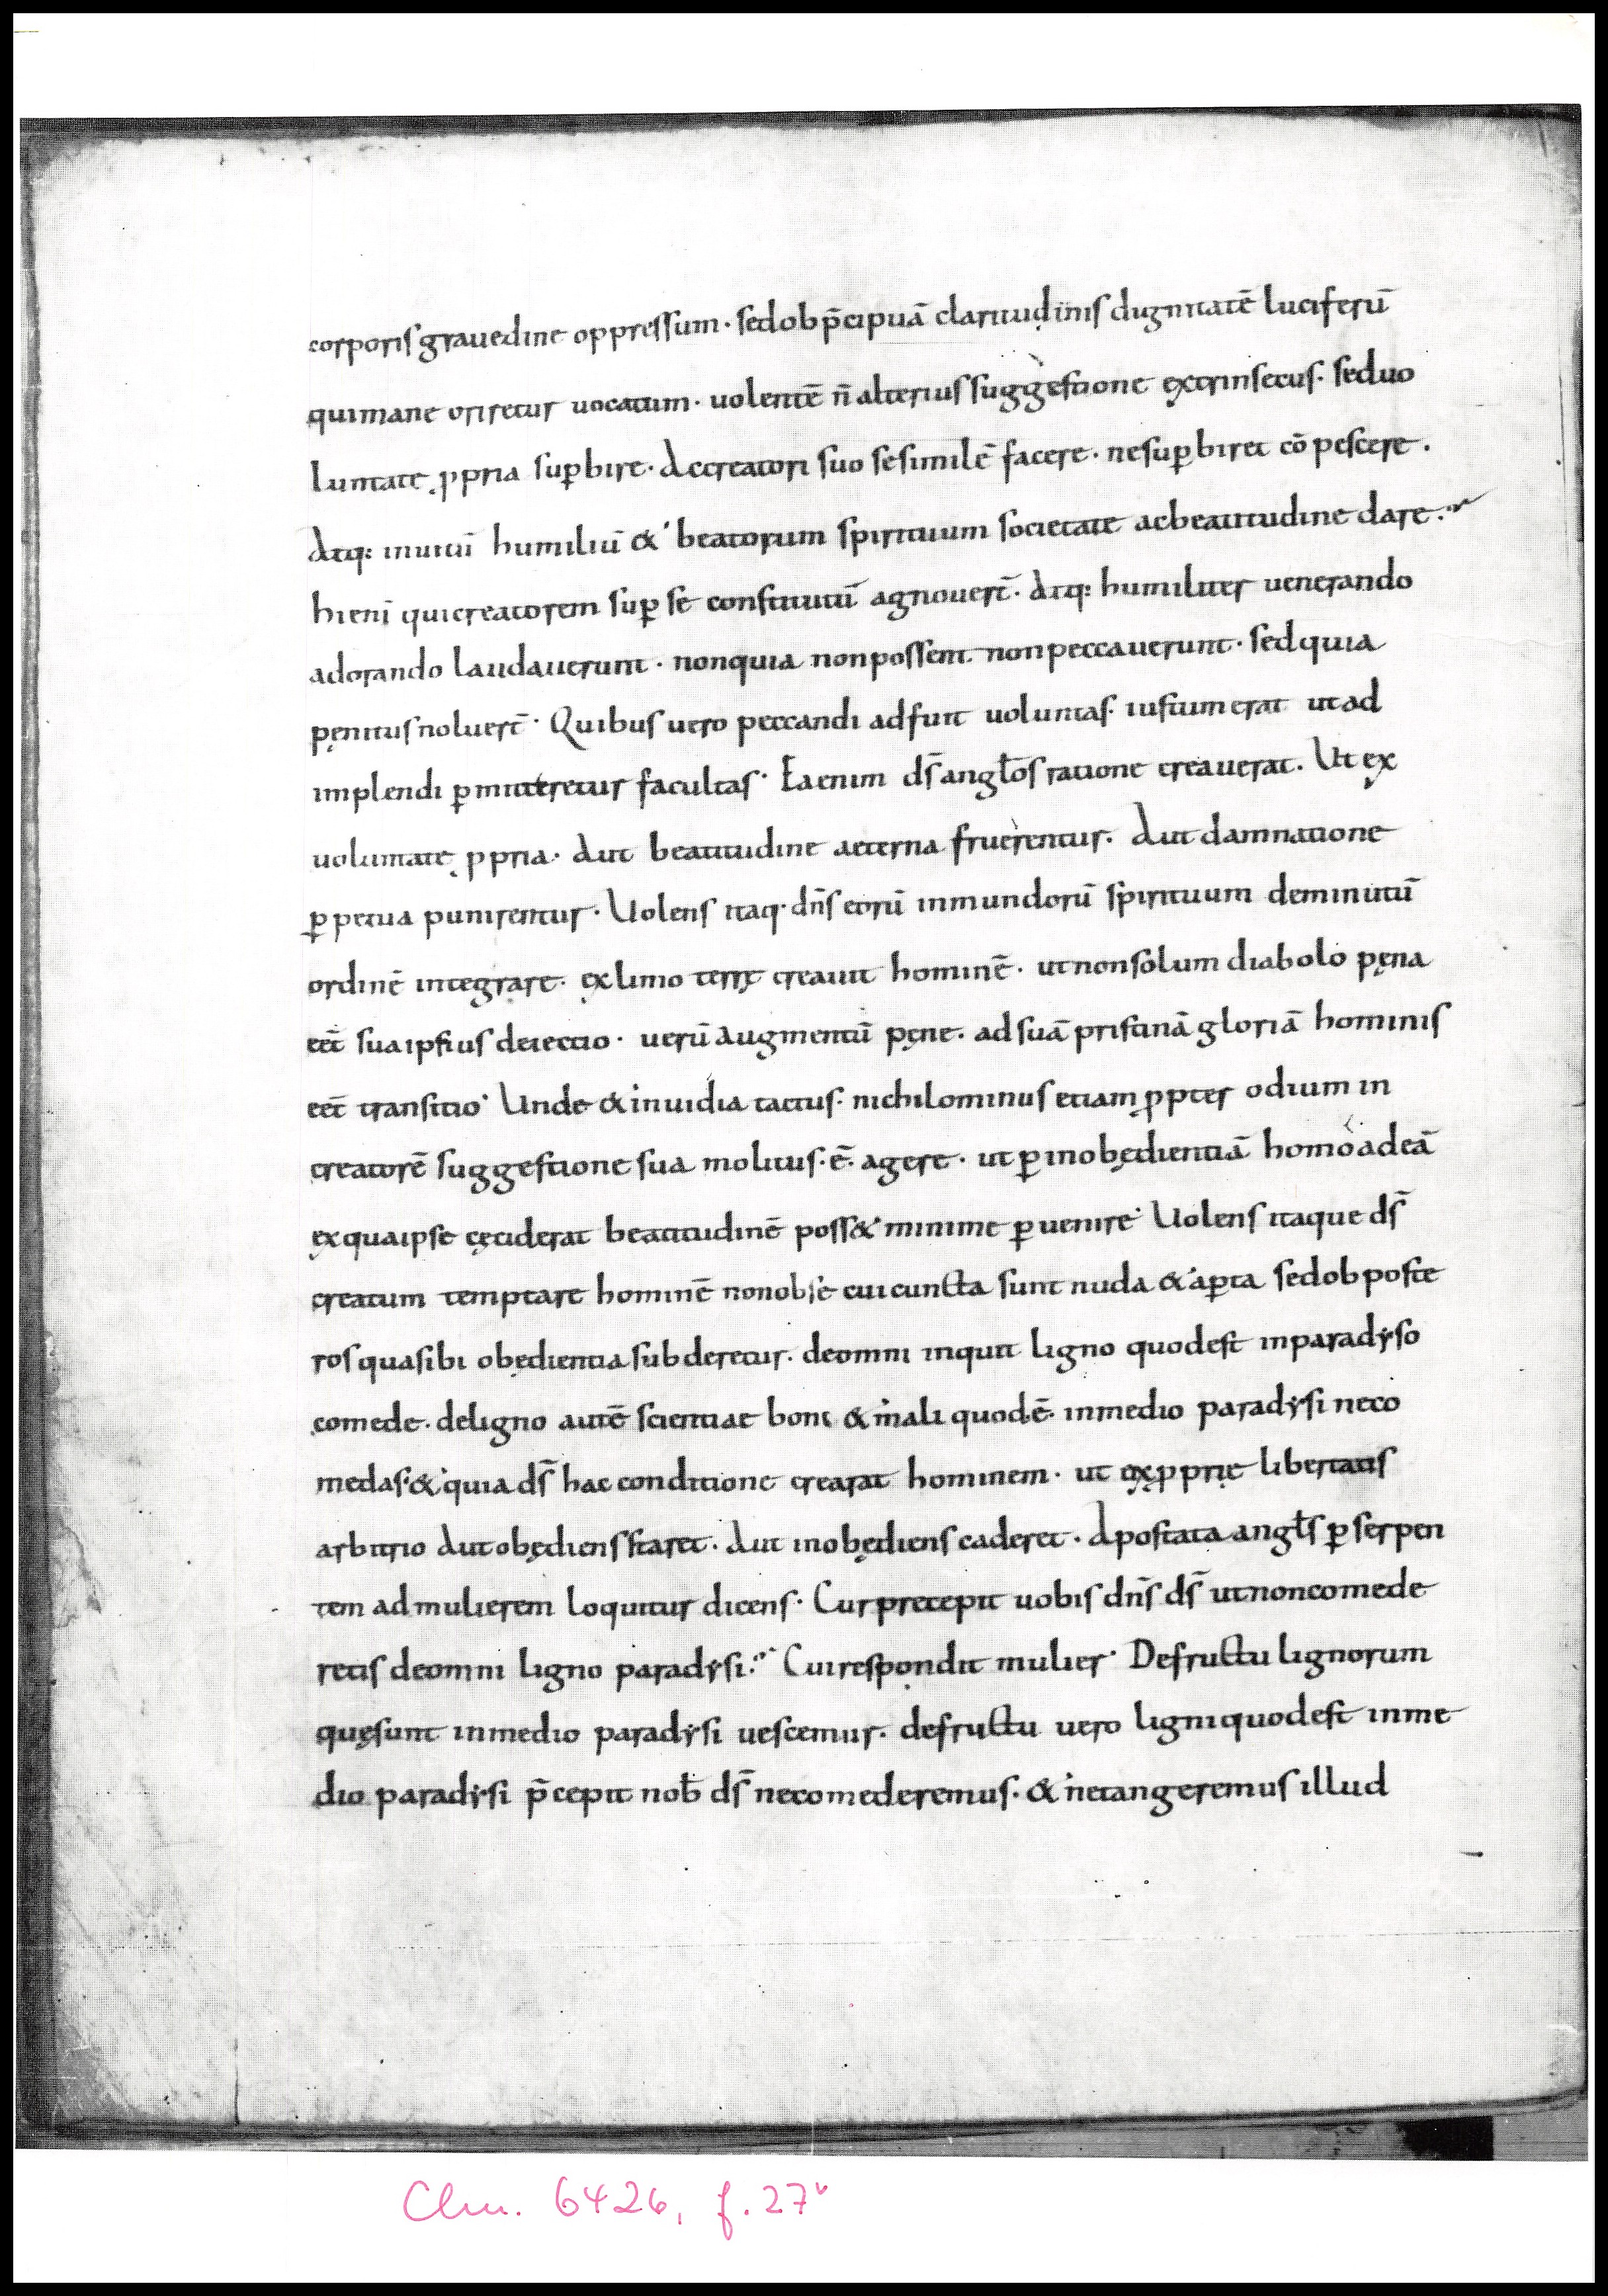 corporis grauedine oppressum· sed ob p̄cipuā claritudinis dignitatē luciferū
qui mane oriretur uocatum· uolentē n̄ alterius suggestione extrinsecus· sed uo
luntate ꝓpria suꝑbire· Ac creatori suo se similē facere· ne suꝑbiret cōpescere·
Atq: inuitū humiliū & beatorum spirituum societate ac beatitudine dare·
hi enī qui creatorem suꝑ se constitutū agnouert̄· Atq: humiliter uenerando
adorando laudauerunt· non quia non possent non peccauerunt· sed quia
pęnitus noluert̄· Quibus uero peccandi adfuit uoluntas· iustum erat ut ad
implendi ꝑmitteretur facultas· Ea enim ds̄ angłos ratione creauerat· Ut ex
uoluntate ꝓpria· Aut beatitudine aeterna fruerentur· Aut damnatione
ꝑpetua punirentur· Uolens itaq· dn̄s eorū inmundorū spirituum deminutū
ordinē integrare· ex limo terrę creauit hominē· ut non solum diabolo pęna
eēt sua ipsius deiectio· uerū augmentū pęne· ad suā pristinā gloriā hominis
eēt transitio· Unde & inuidia tactus· nichilominus etiam ꝓpter odium in
creatorē suggestione sua molitus·ē· agere· ut ꝑ inobędientiā homo ad eā
ex qua ipse cęciderat beatitudinē poss& minime ꝑuenire· Uolens itaque ds̄
creatum temptare hominē non ob se cui cuncta sunt nuda & aꝑta sed ob poste
ros qua sibi obędientia subderetur· de omni inquit ligno quod est in paradẏso
comede· de ligno autē scientiae boni & mali quod·ē· in medio paradẏsi ne co
medas· & quia ds̄ hac conditione crearat hominem· ut ex ꝓprię libertatis
arbitrio Aut obędiens staret· Aut inobędiens caderet· Apostata angłs ꝑ serpen
tem ad mulierem loquitur dicens· Cur precepit uobis dn̄s ds̄ ut non comede
retis de omni ligno paradẏsi· Cui respondit mulier· De fructu lignorum
quę sunt in medio paradẏsi uescemur· de fructu uero ligni quod est in me
dio paradẏsi p̄cepit nob̄ ds̄ ne comederemus· & ne tangeremus illud
Clm. 6426, f. 27v